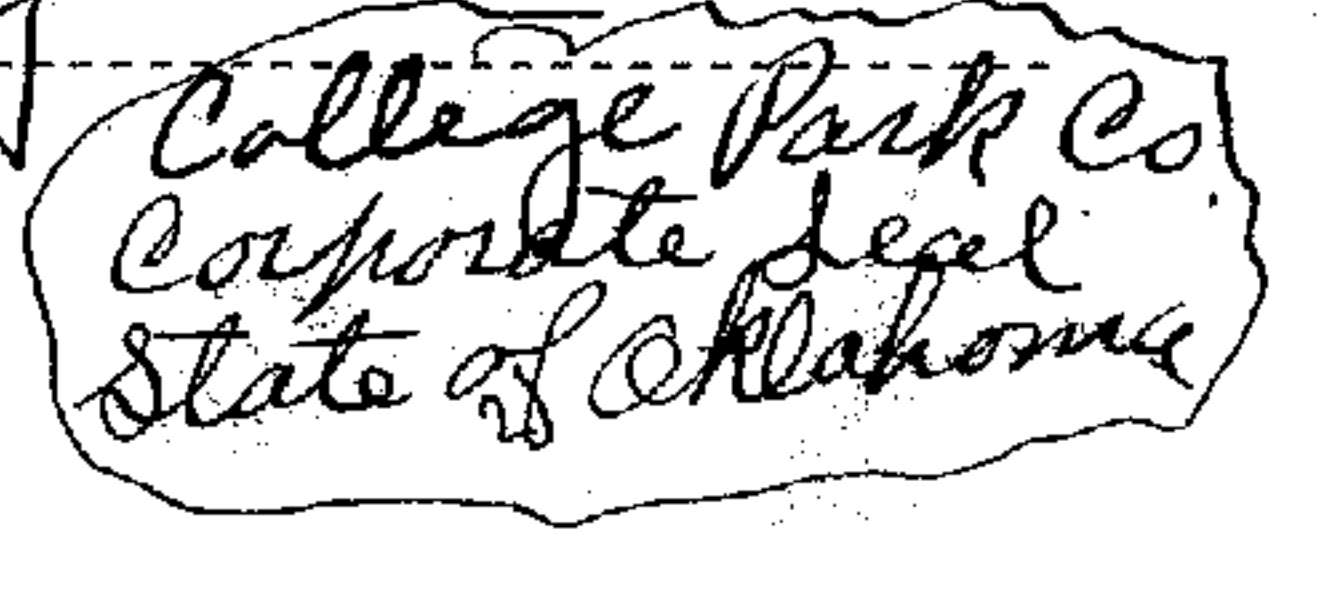 College Park Co
Corporate Seal
State of Oklahoma